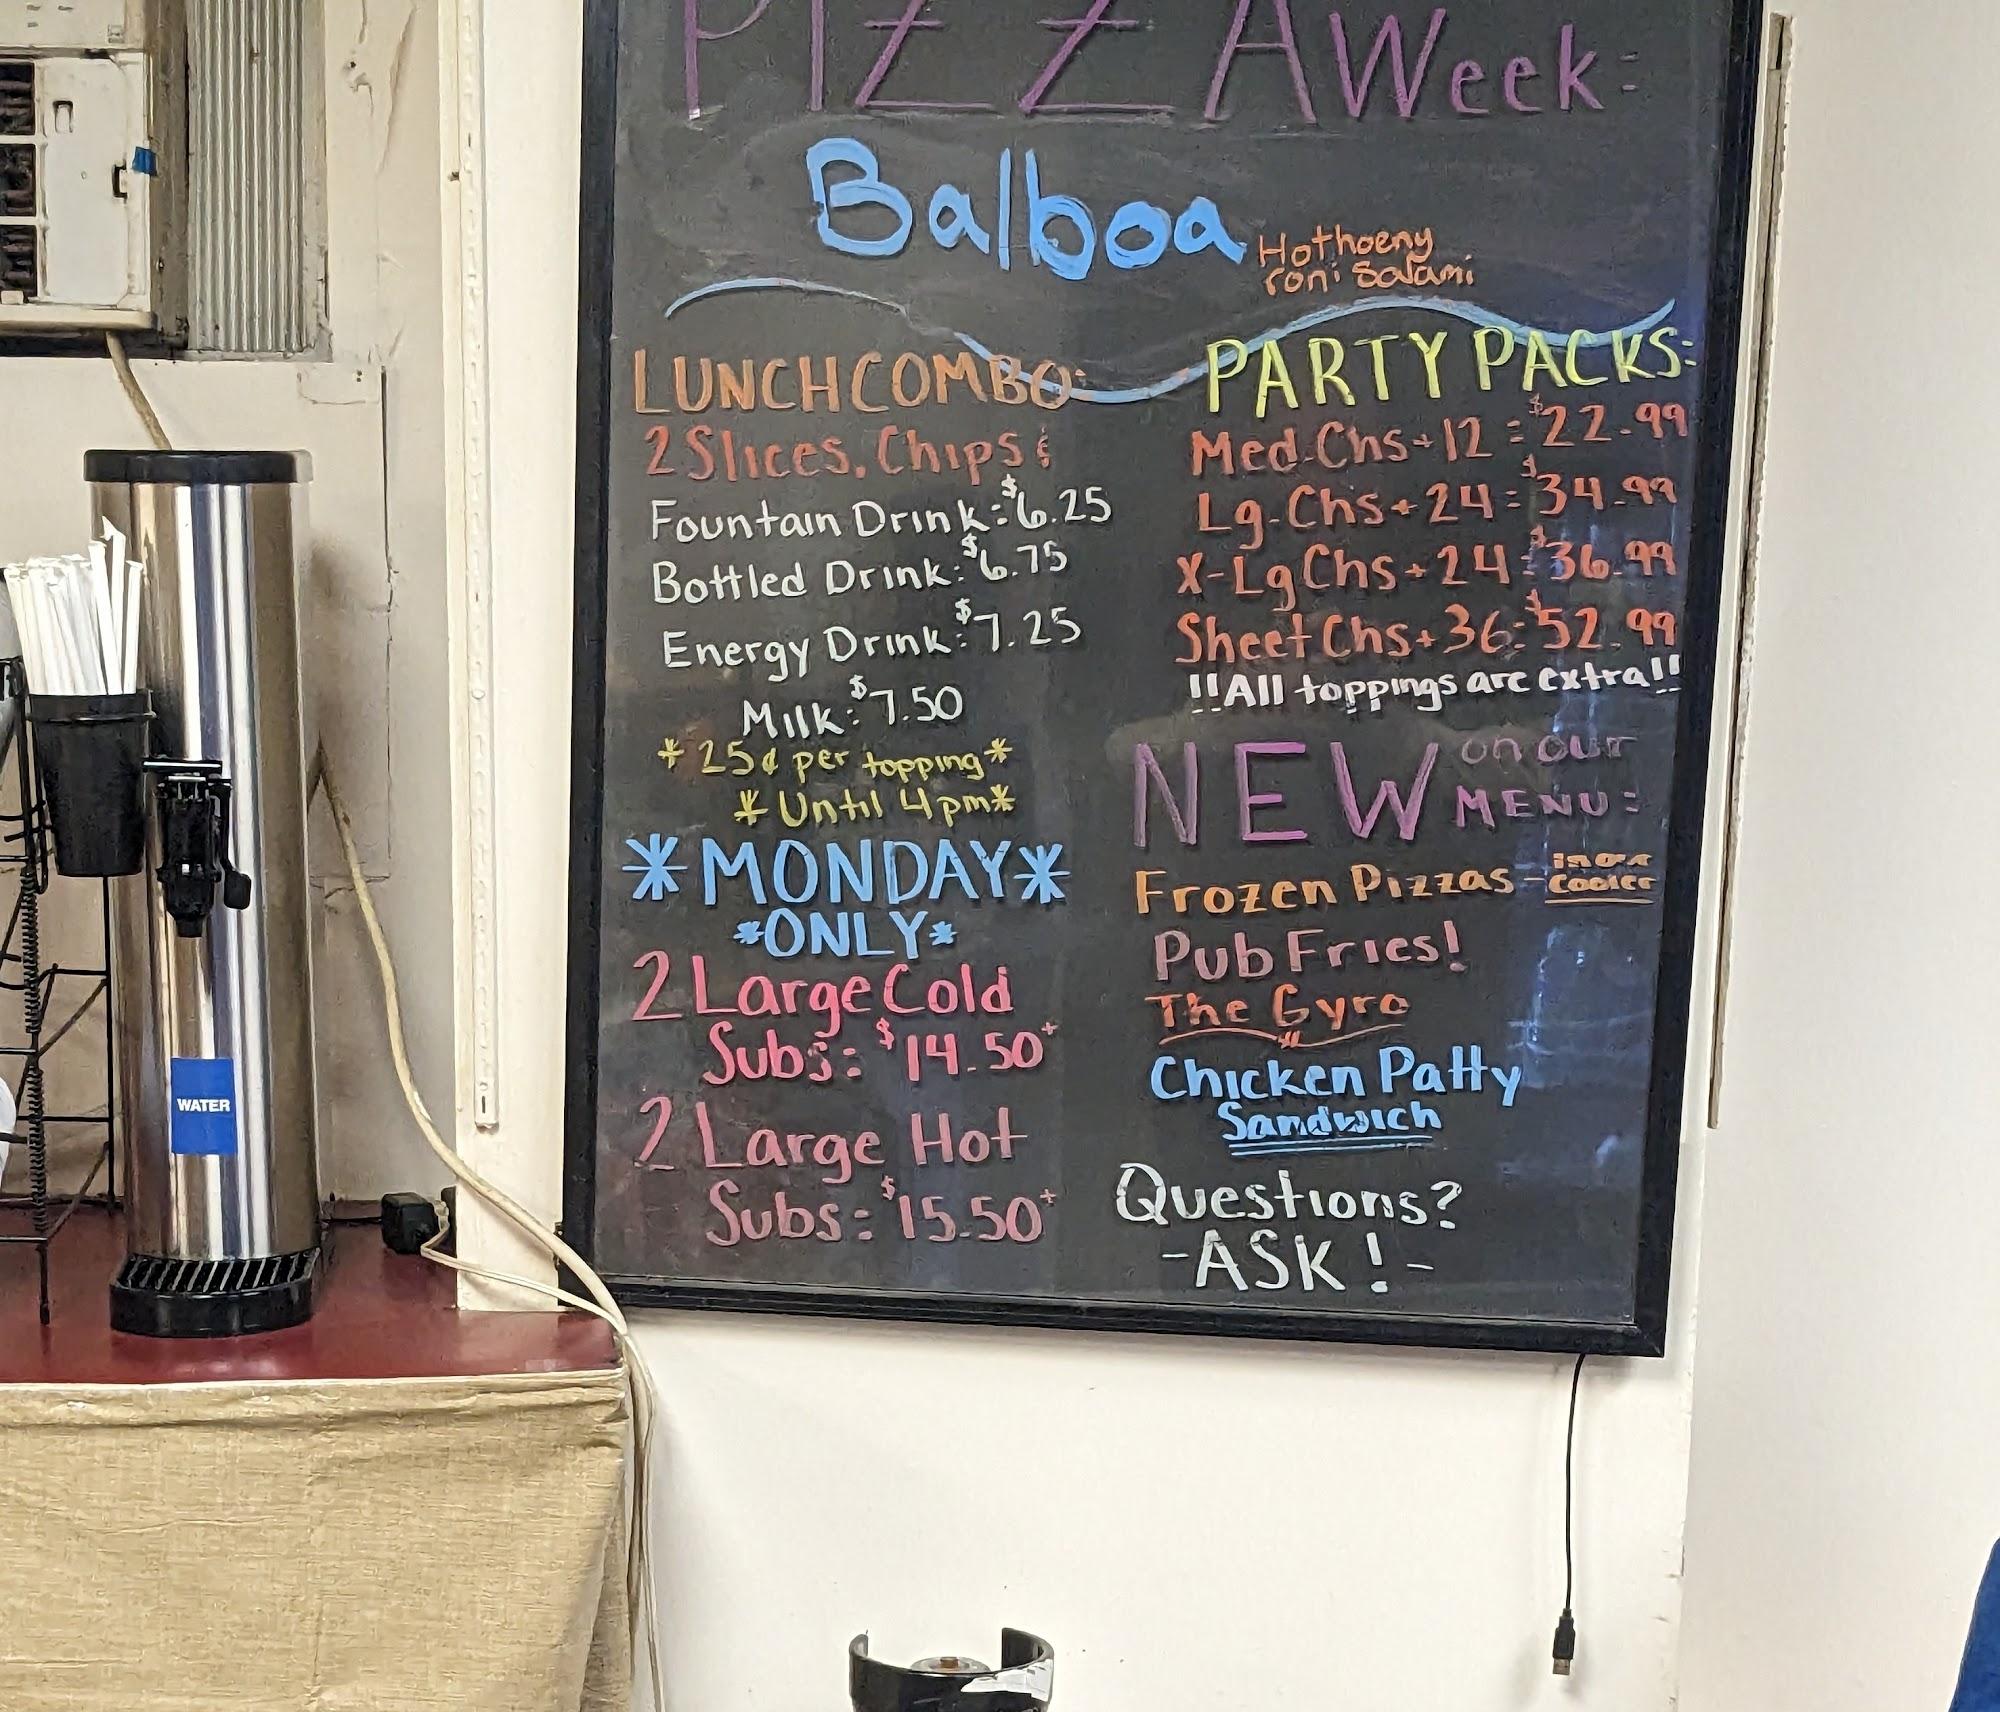 PIZZA Week:
Balboa
Hot honey
roni Salami
LUNCH COMBO:
2 Slices, Chips &
Fountain Drink: $6.25
Bottled Drink: $6.75
Energy Drink: $7.25
Milk: $7.50
*25¢ per topping*
*Until 4pm*
*MONDAY*
*ONLY*
2 Large Cold
Subs: $14.50+
2 Large Hot
Subs: $15.50+
PARTY PACKS:
Med. Chs + 12 = $22.99
Lg. Chs + 24 = $34.99
X-Lg Chs + 24 = $36.99
Sheet Chs + 36 = $52.99
!!All toppings are extra!!
NEW on our
MENU:
Frozen Pizzas - in our
cooler
Pub Fries!
The Gyro
Chicken Patty
Sandwich
Questions?
-ASK!-
WATER